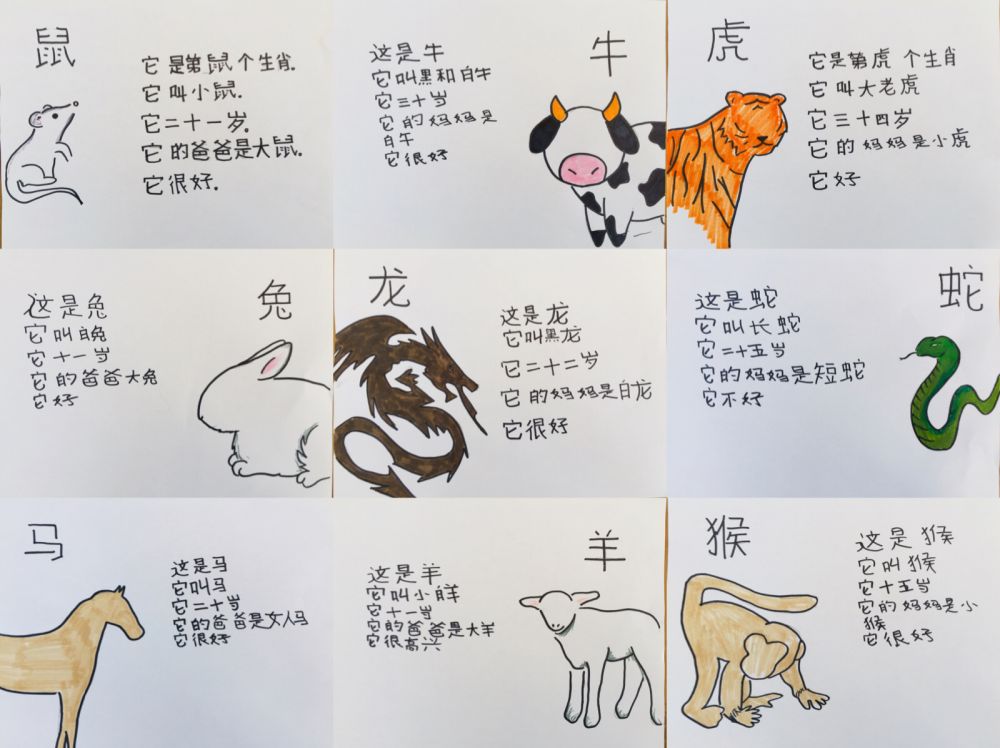 鼠
它是第鼠个生肖.
它叫小鼠.
它二十一岁.
它的爸爸是大鼠.
它很好.
牛
这是牛
它叫黑和白牛
它三十岁
它的妈妈是
白牛
它很好
虎
它是第虎个生肖
它叫大老虎
它三十四岁
它的妈妈是小虎
它好
兔
这是兔
它叫白兔
它十一岁
它的爸爸大兔
它好
龙
这是龙
它叫黑龙
它二十二岁
它的妈妈是白龙
它很好
蛇
这是蛇
它叫长蛇
它二十五岁
它的妈妈是短蛇
它不好
马
这是马
它叫马
它二十岁
它的爸爸是女人马
它很好
羊
这是羊
它叫小羊
它十一岁
它的爸爸是大羊
它很高兴
猴
这是猴
它叫猴
它十五岁
它的妈妈是小
猴
它很好